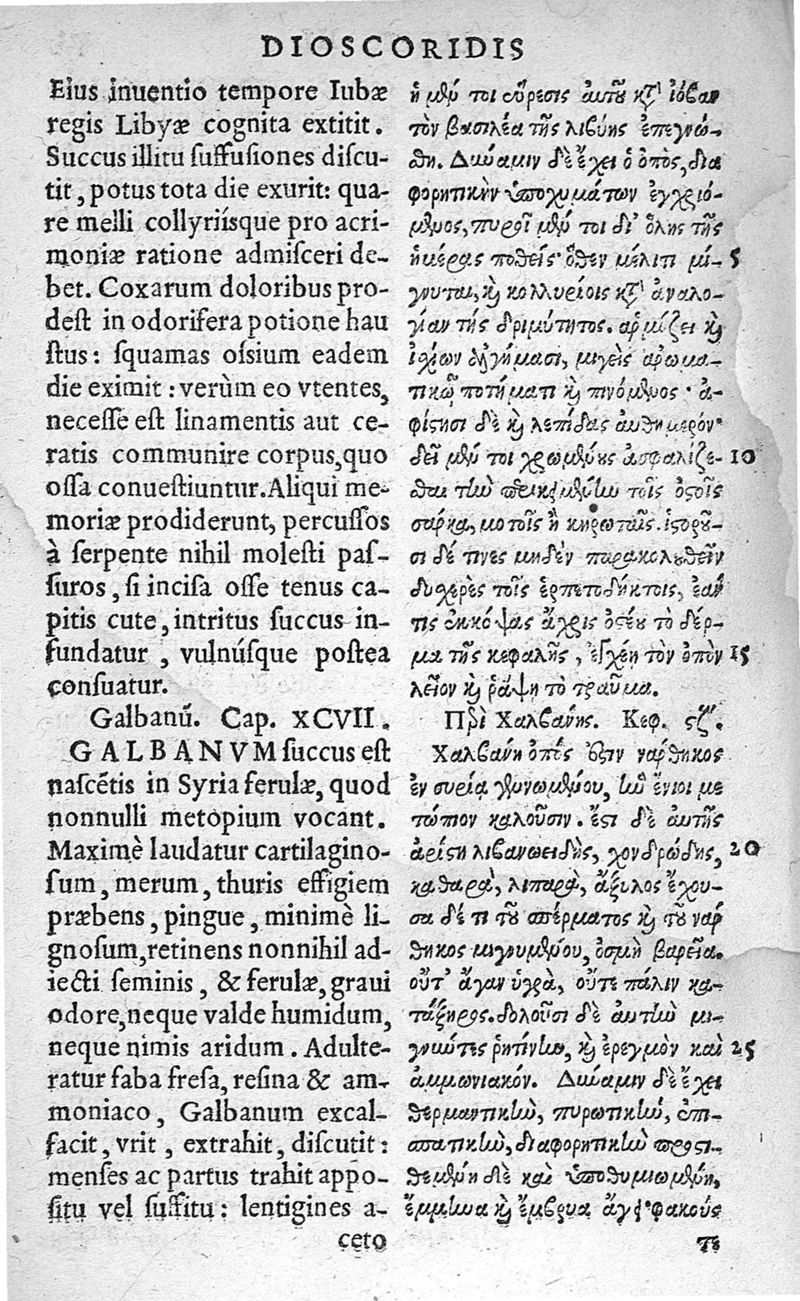 DIOSCORIDIS
Eius inuentio tempore Iubæ
regis Libyæ cognita extitit.
Succus illitu ſuffuſiones diſcu-
tit, potus tota die exurit: qua-
re melli collyriíſque pro acri-
moniæ ratione admiſceri de-
bet. Coxarum doloribus pro-
deſt in odorifera potione hau
ſtus: ſquamas oſsium eadem
die eximit: verùm eo vtentes,
neceſſe eſt linamentis aut ce-
ratis communire corpus, quo
oſſa conueſtiuntur. Aliqui me-
moriæ prodiderunt, percuſſos
à ſerpente nihil moleſti paſ-
ſuros, ſi inciſa oſſe tenus ca-
pitis cute, intritus ſuccus in-
fundatur, vulnúſque poſtea
conſuatur.
Galbanũ. Cap. XCVII.
GALBANVM ſuccus eſt
naſcẽtis in Syria ferulæ, quod
nonnulli metopium vocant.
Maximè laudatur cartilagino-
ſum, merum, thuris effigiem
præbens, pingue, minimè li-
gnoſum, retinens nonnihil ad-
iecti ſeminis, & ferulæ, graui
odore, neque valde humidum,
neque nimis aridum. Adulte-
ratur faba freſa, reſina & am-
moniaco, Galbanum excal-
facit, vrit, extrahit, diſcutit:
menſes ac partus trahit appo-
ſitu vel ſuffitu: lentigines a-
ceto
ἡ μὲν τοι εὕρεσις αὐτοῦ κτ' ἰόβαν
τὸν βασιλέα τῆς λιβύης ἐπεγνώ-
θη. Δύναμιν δὲ ἔχει ὁ ὀπὸς, δια
φορητικὴν ὑποχυμάτων ἐγχριό-
μενος, πυροῖ μέν τοι δι' ὅλης τῆς
ἡμέρας ποθείς· ὅθεν μέλιτι μί- 5
γνυται, καὶ κολλυρίοις κτ' ἀναλο-
γίαν τῆς δριμύτητος. ἁρμόζει καὶ
ἰσχίων ἀλγήμασι, μιγεὶς ἀρωμα-
τικῷ ποτήματι καὶ πινόμενος· ἀ-
φίστησι δὲ καὶ λεπίδας αὐθημερόν·
δεῖ μέν τοι χρωμένης ἀσφαλίζε- 10
σθαι τὴν περικειμένην τοῖς ὀστοῖς
σάρκα, μοτοῖς ἢ κηρωταῖς. ἱστοροῦ-
σι δέ τινες μηδὲν παρακολουθεῖν
δυσχερὲς τοῖς ἑρπετοδήκτοις, ἐάν
τις ἐκκόψας ἄχρις ὀστέου τὸ δέρ-
μα τῆς κεφαλῆς, ἐγχέῃ τὸν ὀπὸν 15
λεῖον καὶ ῥάψῃ τὸ τραῦμα.
Περὶ Χαλβάνης. Κεφ. ϛζ'.
Χαλβάνη ὀπός ἐστιν νάρθηκος
ἐν συρία γεννωμένου, ἣν ἔνιοι με
τώπιον καλοῦσιν. ἔστι δὲ αὐτῆς
ἀρίστη λιβανωειδὴς, χονδρώδης, 20
καθαρὰ, λιπαρὰ, ἄξυλος ἔχου-
σα δέ τι τοῦ σπέρματος καὶ τοῦ ναρ
θηκος μιγνυμένου, ὀσμῇ βαρεῖα.
οὔτ' ἄγαν ὑγρὰ, οὔτε πάλιν κα-
τάξηρος. δολοῦσι δὲ αὐτὴν μι-
γνύντες ῥητίνην, καὶ ἐρεγμὸν καὶ 25
ἀμμωνιακόν. Δύναμιν δὲ ἔχει
θερμαντικὴν, πυρωτικὴν, ἐπι-
σπατικὴν, διαφορητικὴν προστι-
θεμένη δὲ καὶ ὑποθυμιωμένη,
ἔμμηνα καὶ ἔμβρυα ἄγει· φακούς
τε